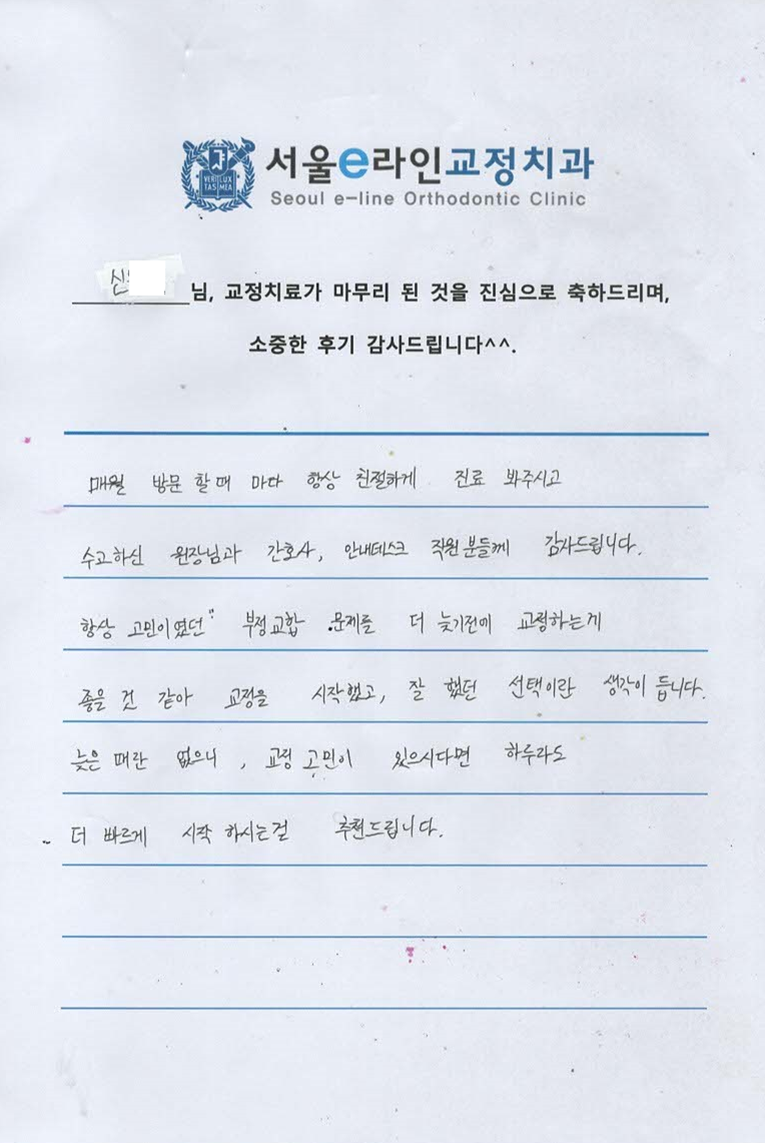 서울e라인교정치과
VERI LUX TAS MEA
Seoul e-line Orthodontic Clinic
신
님, 교정치료가 마무리 된 것을 진심으로 축하드리며,
소중한 후기 감사드립니다^^.
매월 방문 할때 마다 항상 친절하게 진료 봐주시고
수고하신 원장님과 간호사, 안내데스크 직원분들께 감사드립니다.
항상 고민이였던" 부정교합 문제를 더 늦기전에 교정하는게
좋을 것 같아 교정을 시작했고, 잘 했던 선택이란 생각이 듭니다.
늦은 때란 없으니, 교정 고민이 있으시다면 하루라도
더 빠르게 시작 하시는걸 추천드립니다.